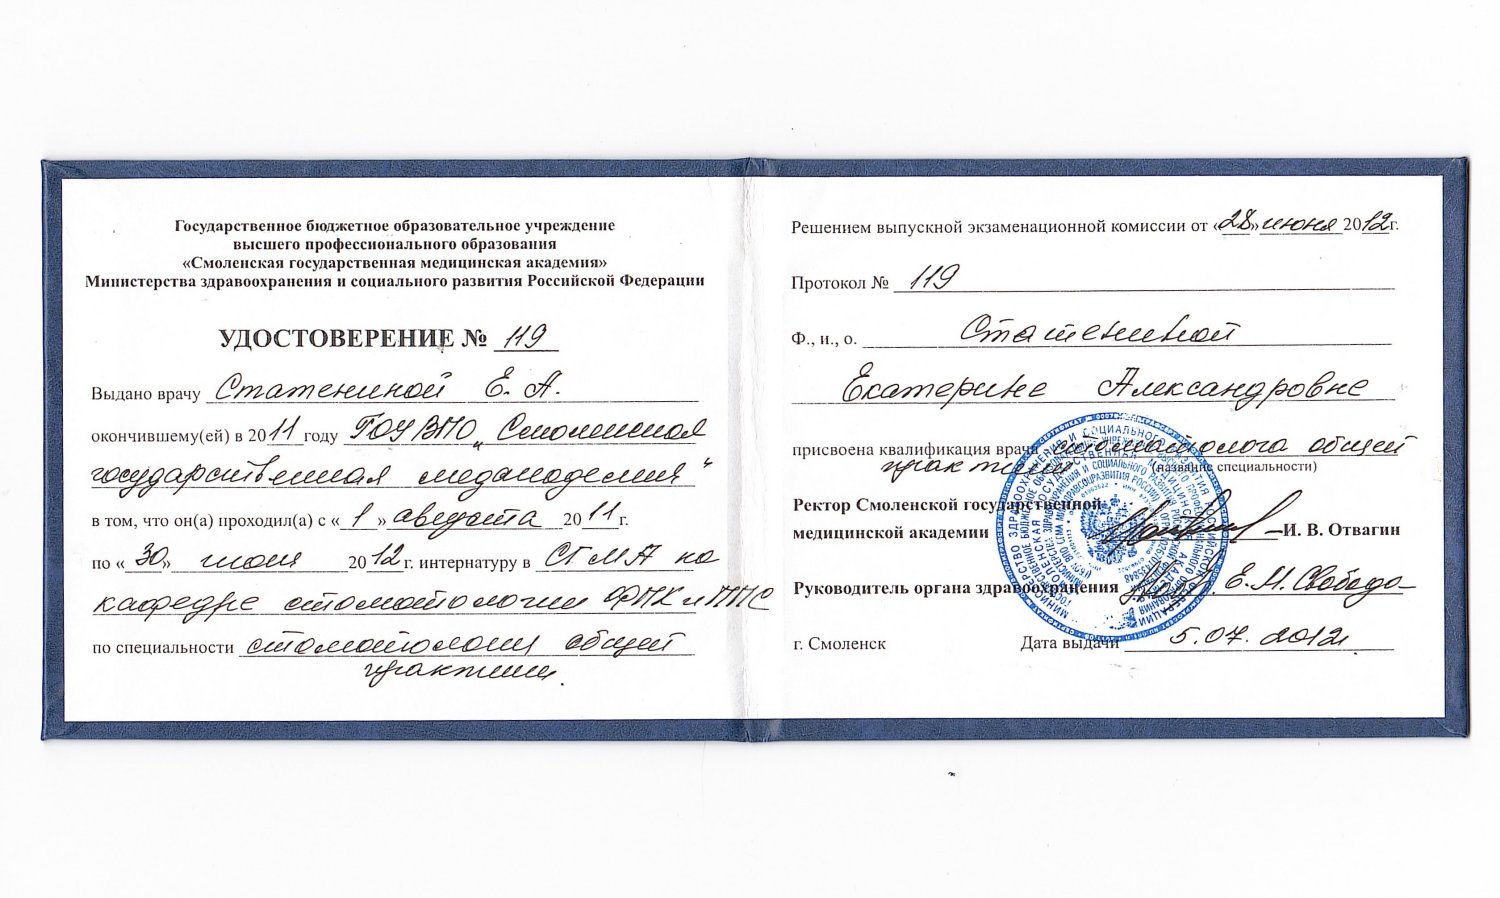 Государственное бюджетное образовательное учреждение
высшего профессионального образования
«Смоленская государственная медицинская академия»
Министерства здравоохранения и социального развития Российской Федерации
УДОСТОВЕРЕНИЕ № 119
Выдано врачу Статениной Е. А.
окончившему(ей) в 2011 году ГОУ ВПО „Смоленская
государственная медакадемия“
в том, что он(а) проходил(а) с «1» августа 2011г.
по «30» июня 2012г. интернатуру в СГМА на
кафедре стоматологии ФПК и ППС
по специальности стоматологии общей
практики.
Решением выпускной экзаменационной комиссии от «28» июня 2012г.
Протокол № 119
Ф., и., о. Статениной
Екатерине Александровне
присвоена квалификация врача стоматолога общей
практики (название специальности)
Ректор Смоленской государственной
медицинской академии И. В. Отвагин
Руководитель органа здравоохранения Е.Н. Свобода
г. Смоленск Дата выдачи 5.07.2012